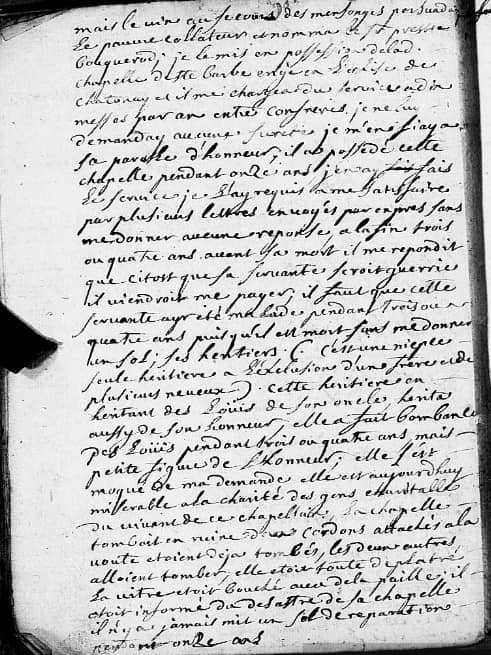 mais le vin qu'
des mensonges persuada
Le pauvre Collateur et nomma le Sr prestre
bouquerod; je le mis en possession de lad.
chapelle de Ste barbe erigé en L'eglise de
Chatonay et il me chargea du service a dix
messes par an entre Confreres, je ne luy
demanday aucune sureté je m'en fiay a
sa parolle d'honneur, il a possedé cette
chapelle pendant onze ans j'en ay fais
Le service je L'ay requis a me satisfaire
par plusieurs lettres envoyés par expres sans
me donner aucune reponse a la fin trois
ou quatre ans avant sa mort il me repondit
que sitost que sa servante seroit guerrie
il viendroit me payer, il faut que cette
servante ayt été malade pendant trois ou
quatre ans puisqu'il est mort sans me donner
un sol; ses heritiers, ( C'est une niepce
seule heritiere a L'exclusion d'un frere et de
plusieurs neveux ). cette heritiere en
heritant des Loüis de son oncle herita
aussy de son honneur, elle a fait bombance
des Loüis pendant trois ou quatre ans, mais
petite figue de L'honneur, elle s'est
moqué de ma demande elle est aujourdhuy
miserable a la charité des gens
du vivant de ce chapelain, La chapelle
tomboit en ruine deux Cordons attachés a la
voute etoient deja tombés, les deux autres
alloient tomber, elle etoit toute deplatré
La vitre etoit bouché avec de la paille; il
etoit informé du desastre de sa chapelle
il n'y a jamais mit un sol de reparation
pendant onze ans